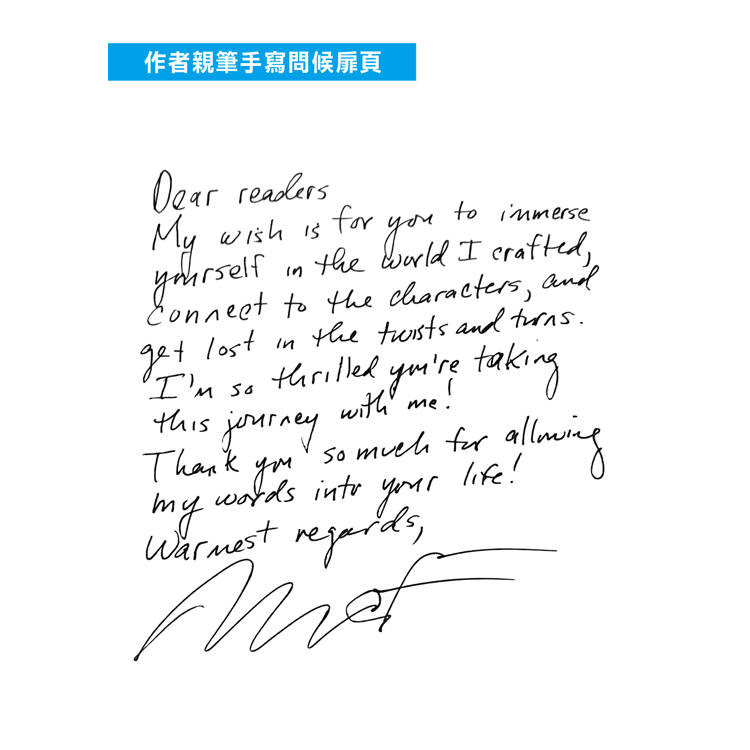 作者親筆手寫問候扉頁
Dear readers
My wish is for you to immerse
yourself in the world I crafted,
connect to the characters, and
get lost in the twists and turns.
I'm so thrilled you're taking
this journey with me!
Thank you so much for allowing
my words into your life!
Warmest regards,